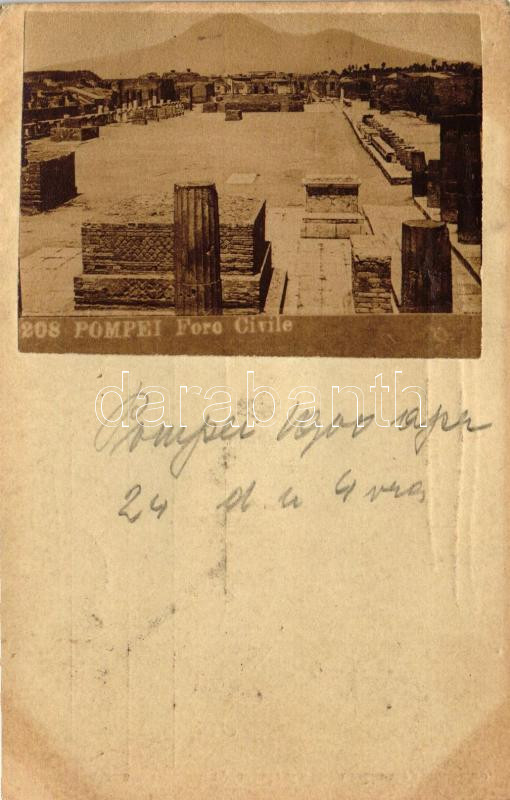 208 POMPEI Foro Civile
darabanth
Pompei 1900 apr
24 d. u 4 óra